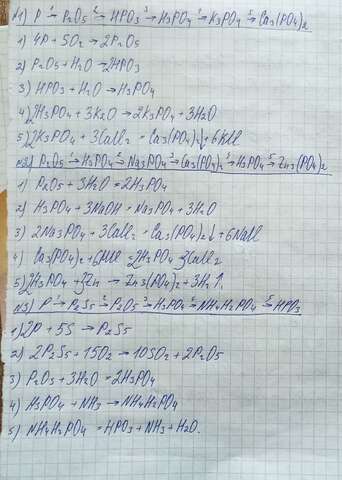 №1) P →¹ P₂O₅ →² HPO₃ →³ H₃PO₄ →⁴ K₃PO₄ →⁵ Ca₃(PO₄)₂
1) 4P + 5O₂ → 2P₂O₅
2) P₂O₅ + H₂O → 2HPO₃
3) HPO₃ + H₂O → H₃PO₄
4) 2H₃PO₄ + 3K₂O → 2K₃PO₄ + 3H₂O
5) 2K₃PO₄ + 3CaCl₂ = Ca₃(PO₄)₂↓ + 6KCl
№2) P₂O₅ →¹ H₃PO₄ →² Na₃PO₄ →³ Ca₃(PO₄)₂ →⁴ H₃PO₄ →⁵ Zn₃(PO₄)₂
1) P₂O₅ + 3H₂O = 2H₃PO₄
2) H₃PO₄ + 3NaOH = Na₃PO₄ + 3H₂O
3) 2Na₃PO₄ + 3CaCl₂ = Ca₃(PO₄)₂↓ + 6NaCl
4) Ca₃(PO₄)₂ + 6HCl = 2H₃PO₄ + 3CaCl₂
5) 2H₃PO₄ + 3Zn → Zn₃(PO₄)₂ + 3H₂↑
№3) P →¹ P₂S₅ →² P₂O₅ →³ H₃PO₄ →⁴ NH₄H₂PO₄ →⁵ HPO₃
1) 2P + 5S → P₂S₅
2) 2P₂S₅ + 15O₂ → 10SO₂ + 2P₂O₅
3) P₂O₅ + 3H₂O = 2H₃PO₄
4) H₃PO₄ + NH₃ → NH₄H₂PO₄
5) NH₄H₂PO₄ = HPO₃ + NH₃ + H₂O.